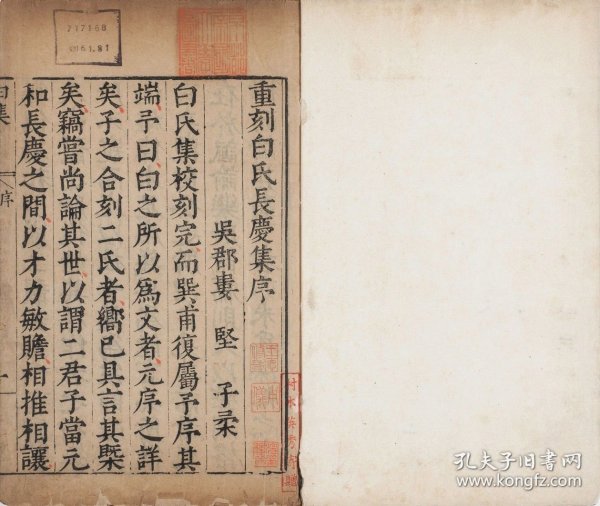 重刻白氏長慶集序
吳郡婁 堅 子柔
白氏集校刻完而巽甫復屬予序其
端予曰白之所以為文者元序之詳
矣子之合刻二氏者嚮已具言其槩
矣竊嘗尚論其世以謂二君子當元
和長慶之間以才力敏贍相推相讓
白集
序
一
717168
孔夫子旧书网
www.kongfz.com